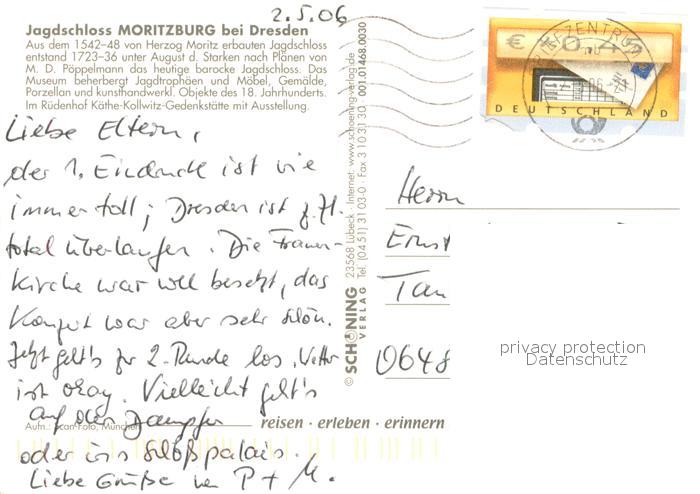 2.5.06
Jagdschloss MORITZBURG bei Dresden
Aus dem 1542–48 von Herzog Moritz erbauten Jagdschloss
entstand 1723–36 unter August d. Starken nach Plänen von
M. D. Pöppelmann das heutige barocke Jagdschloss. Das
Museum beherbergt Jagdtrophäen und Möbel, Gemälde,
Porzellan und kunsthandwerkl. Objekte des 18. Jahrhunderts.
Im Rüdenhof Käthe-Kollwitz-Gedenkstätte mit Ausstellung.
Liebe Eltern,
der 1. Eindruck ist wie
immer toll; Dresden ist z. Zt.
total überlaufen. Die Frauen-
kirche war voll besetzt, das
Konzert war aber sehr schön.
Jetzt geht's zur 2. Runde los, Wetter
ist okay. Vielleicht geht's
auf den Dampfer
oder ins Schloßpalais.
Liebe Grüße von P + M.
Aufn.: Scan-Foto, München
reisen · erleben · erinnern
© SCHÖNING VERLAG
23568 Lübeck · Internet: www.schoening-verlag.de
Tel. (0451) 31 03-0 · Fax 3 10 31 30 001.01468.0030
BRIEFZENTRUM
DEUTSCHLAND
Herrn
Ernst
Tan
0648
privacy protection
Datenschutz